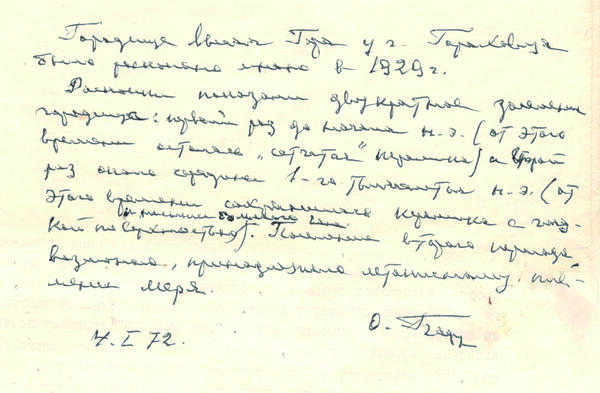 Городище Лысая Гора у г. Гороховца
было раскопано мною в 1929 г.
Раскопки показали двукратное заселение
городища: первый раз до начала н.э. (от этого
времени осталась „сетчатая" керамика) а второй
раз около середины 1-го тысячелетия н.э. (от
этого времени сохранилась керамика с глад-
кой поверхностью). Поселение второго периода
возможно, принадлежало летописному пле-
мени меря.
О. Бадер
4. I 72.